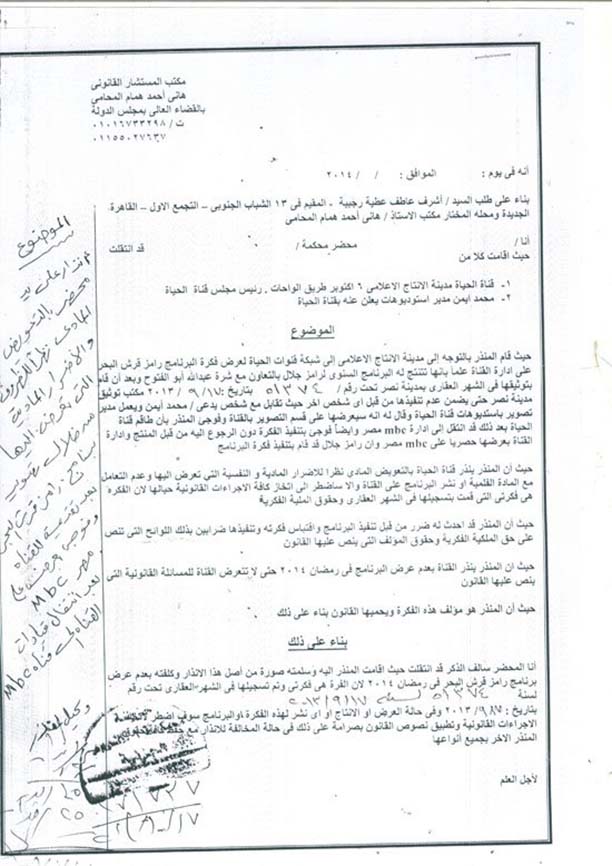 مكتب المستشار القانونى
هانى أحمد همام المحامى
بالقضاء العالى بمجلس الدولة
ت / ٠١٠١٦٧٣٣٢٩٨
٠١١٥٥٠٢٧٦٣٧
أنه فى يوم : الموافق : / / ٢٠١٤
بناء على طلب السيد / أشرف عاطف عطية رجيبة - المقيم فى ١٣ الشباب الجنوبى – التجمع الاول – القاهرة
الجديدة ومحله المختار مكتب الاستاذ / هانى أحمد همام المحامى
أنا / محضر محكمة / قد انتقلت
حيث اقامت كلا من
١- قناة الحياة مدينة الانتاج الاعلامى ٦ اكتوبر طريق الواحات . رئيس مجلس قناة الحياة
٢- محمد ايمن مدير استوديوهات يعلن عنه بقناة الحياة
الموضوع
حيث قام المنذر بالتوجه إلى مدينة الانتاج الاعلامى إلى شبكة قنوات الحياة لعرض فكرة البرنامج رامز قرش البحر
على ادارة القناة علماً بانها تنتج له البرنامج السنوى لرامز جلال بالتعاون مع شرة عبدالله أبو الفتوح وبعد أن قام
بتوثيقها فى الشهر العقارى بمدينة نصر تحت رقم / ٥١٣٧٤ بتاريخ : ٢٠١٣/٩/١٧ مكتب توثيق
مدينة نصر حتى يضمن عدم تنفيذها من قبل اى شخص اخر حيث تقابل مع شخص يدعى / محمد ايمن ويعمل مدير
تصوير باستديوهات قناة الحياة وقال له انه سيعرضها على قسم التصوير بالقناة وفوجئ المنذر بأن طاقم قناة
الحياة بعد ذلك قد انتقل إلى ادارة mbc مصر وايضا فوجئ بتنفيذ الفكرة دون الرجوع اليه من قبل المنتج وادارة
القناة بعرضها حصريا على mbc مصر وان رامز جلال قد قام بتنفيذ فكرة البرنامج
حيث أن المنذر ينذر قناة الحياة بالتعويض المادى نظرا للاضرار المادية و النفسية التي تعرض اليها وعدم التعامل
مع المادة الفلمية او نشر البرنامج على القناة والا ساضطر الى اتخاز كافة الاجراءات القانونية حيالها لان الفكره
هى فكرتى التى قمت بتسجيلها فى الشهر العقارى وحقوق الملية الفكرية
حيث أن المنذر قد احدث له ضرر من قبل تنفيذ البرنامج واقتباس فكرته وتنفيذها ضرابين بذلك اللوائح التى تنص
على حق الملكية الفكرية وحقوق المؤلف التى ينص عليها القانون
حيث ان المنذر ينذر القناة بعدم عرض البرنامج فى رمضان ٢٠١٤ حتى لا تتعرض القناة للمسائلة القانونية التى
ينص عليها القانون
حيث أن المنذر هو مؤلف هذه الفكرة ويحميها القانون بناء على ذلك
بناء على ذلك
أنا المحضر سالف الذكر قد انتقلت حيث اقامت المنذر اليه وسلمته صورة من أصل هذا الانذار وكلفته بعدم عرض
برنامج رامز قرش البحر فى رمضان ٢٠١٤ لان الفرة هى فكرتى وتم تسجيلها فى الشهر العقارى تحت رقم
٥١٣٧٤ لسنة ٢٠١٣/٩/١٧
لسنة
بتاريخ : ٢٠١٣/٩/٨٧ وفى حالة العرض او الانتاج او اى نشر لهذه الفكرة او البرنامج سوف اضطر
الاجراءات القانونية وتطبيق نصوص القانون بصرامة على ذلك فى حالة المخالفة للانذار مع
المنذر الاخر بجميع أنواعها
لأجل العلم
الموضوع
انذار على يد
محضر بالتعويض
المادى نظرا للظروف
والاضرار المادية
التى تعرض اليها
من خلال
برنامج رامز قرش البحر
بعد تقديمه للقناه
وفوجئ بعرضه على
mbc مصر
بعد انتقال قيادات
القناه الى قناه mbc
وكيل